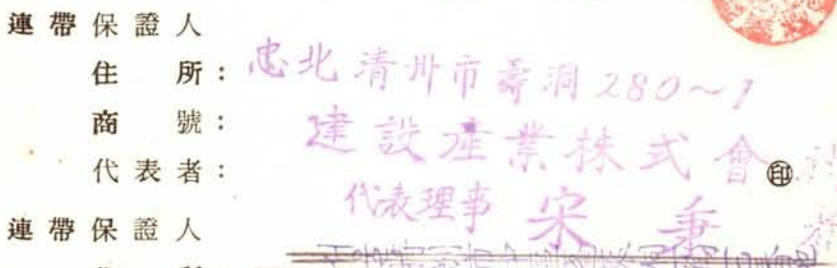 連帶保證人
住所:忠北清州市壽洞280~1
商號:建設産業株式會
代表者:代表理事 宋秉 印
連帶保證人